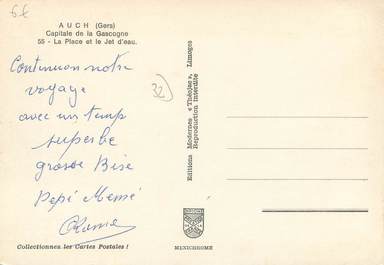 6€
AUCH (Gers)
Capitale de la Gascogne
55 - La Place et le Jet d'eau.
Continuon notre
voyage
avec un temp
superbe
grosse Bise
Pépé Mémé
32
Collectionnez les Cartes Postales !
Editions Modernes « Théojac », Limoges
Reproduction interdite
MEXICHROME